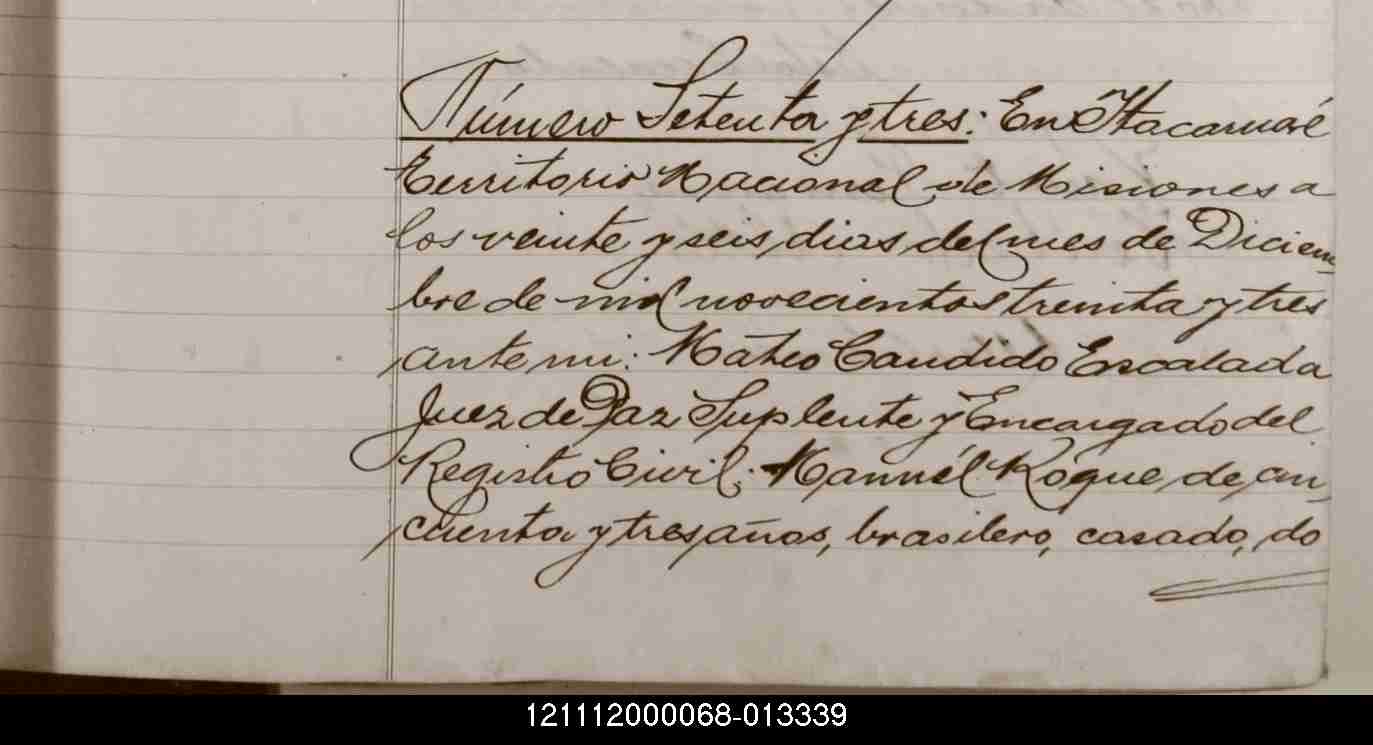 Número Setenta y tres: En Itacaruaré
Territorio Nacional de Misiones a
los veinte y seis dias del mes de Diciem
bre de mil novecientos treinta y tres
ante mi: Mateo Candido Escalada
Juez de Paz Suplente y Encargado del
Registro Civil: Manuél Roque de cin
cuenta y tres años, brasilero, casado, do
121112000068-013339